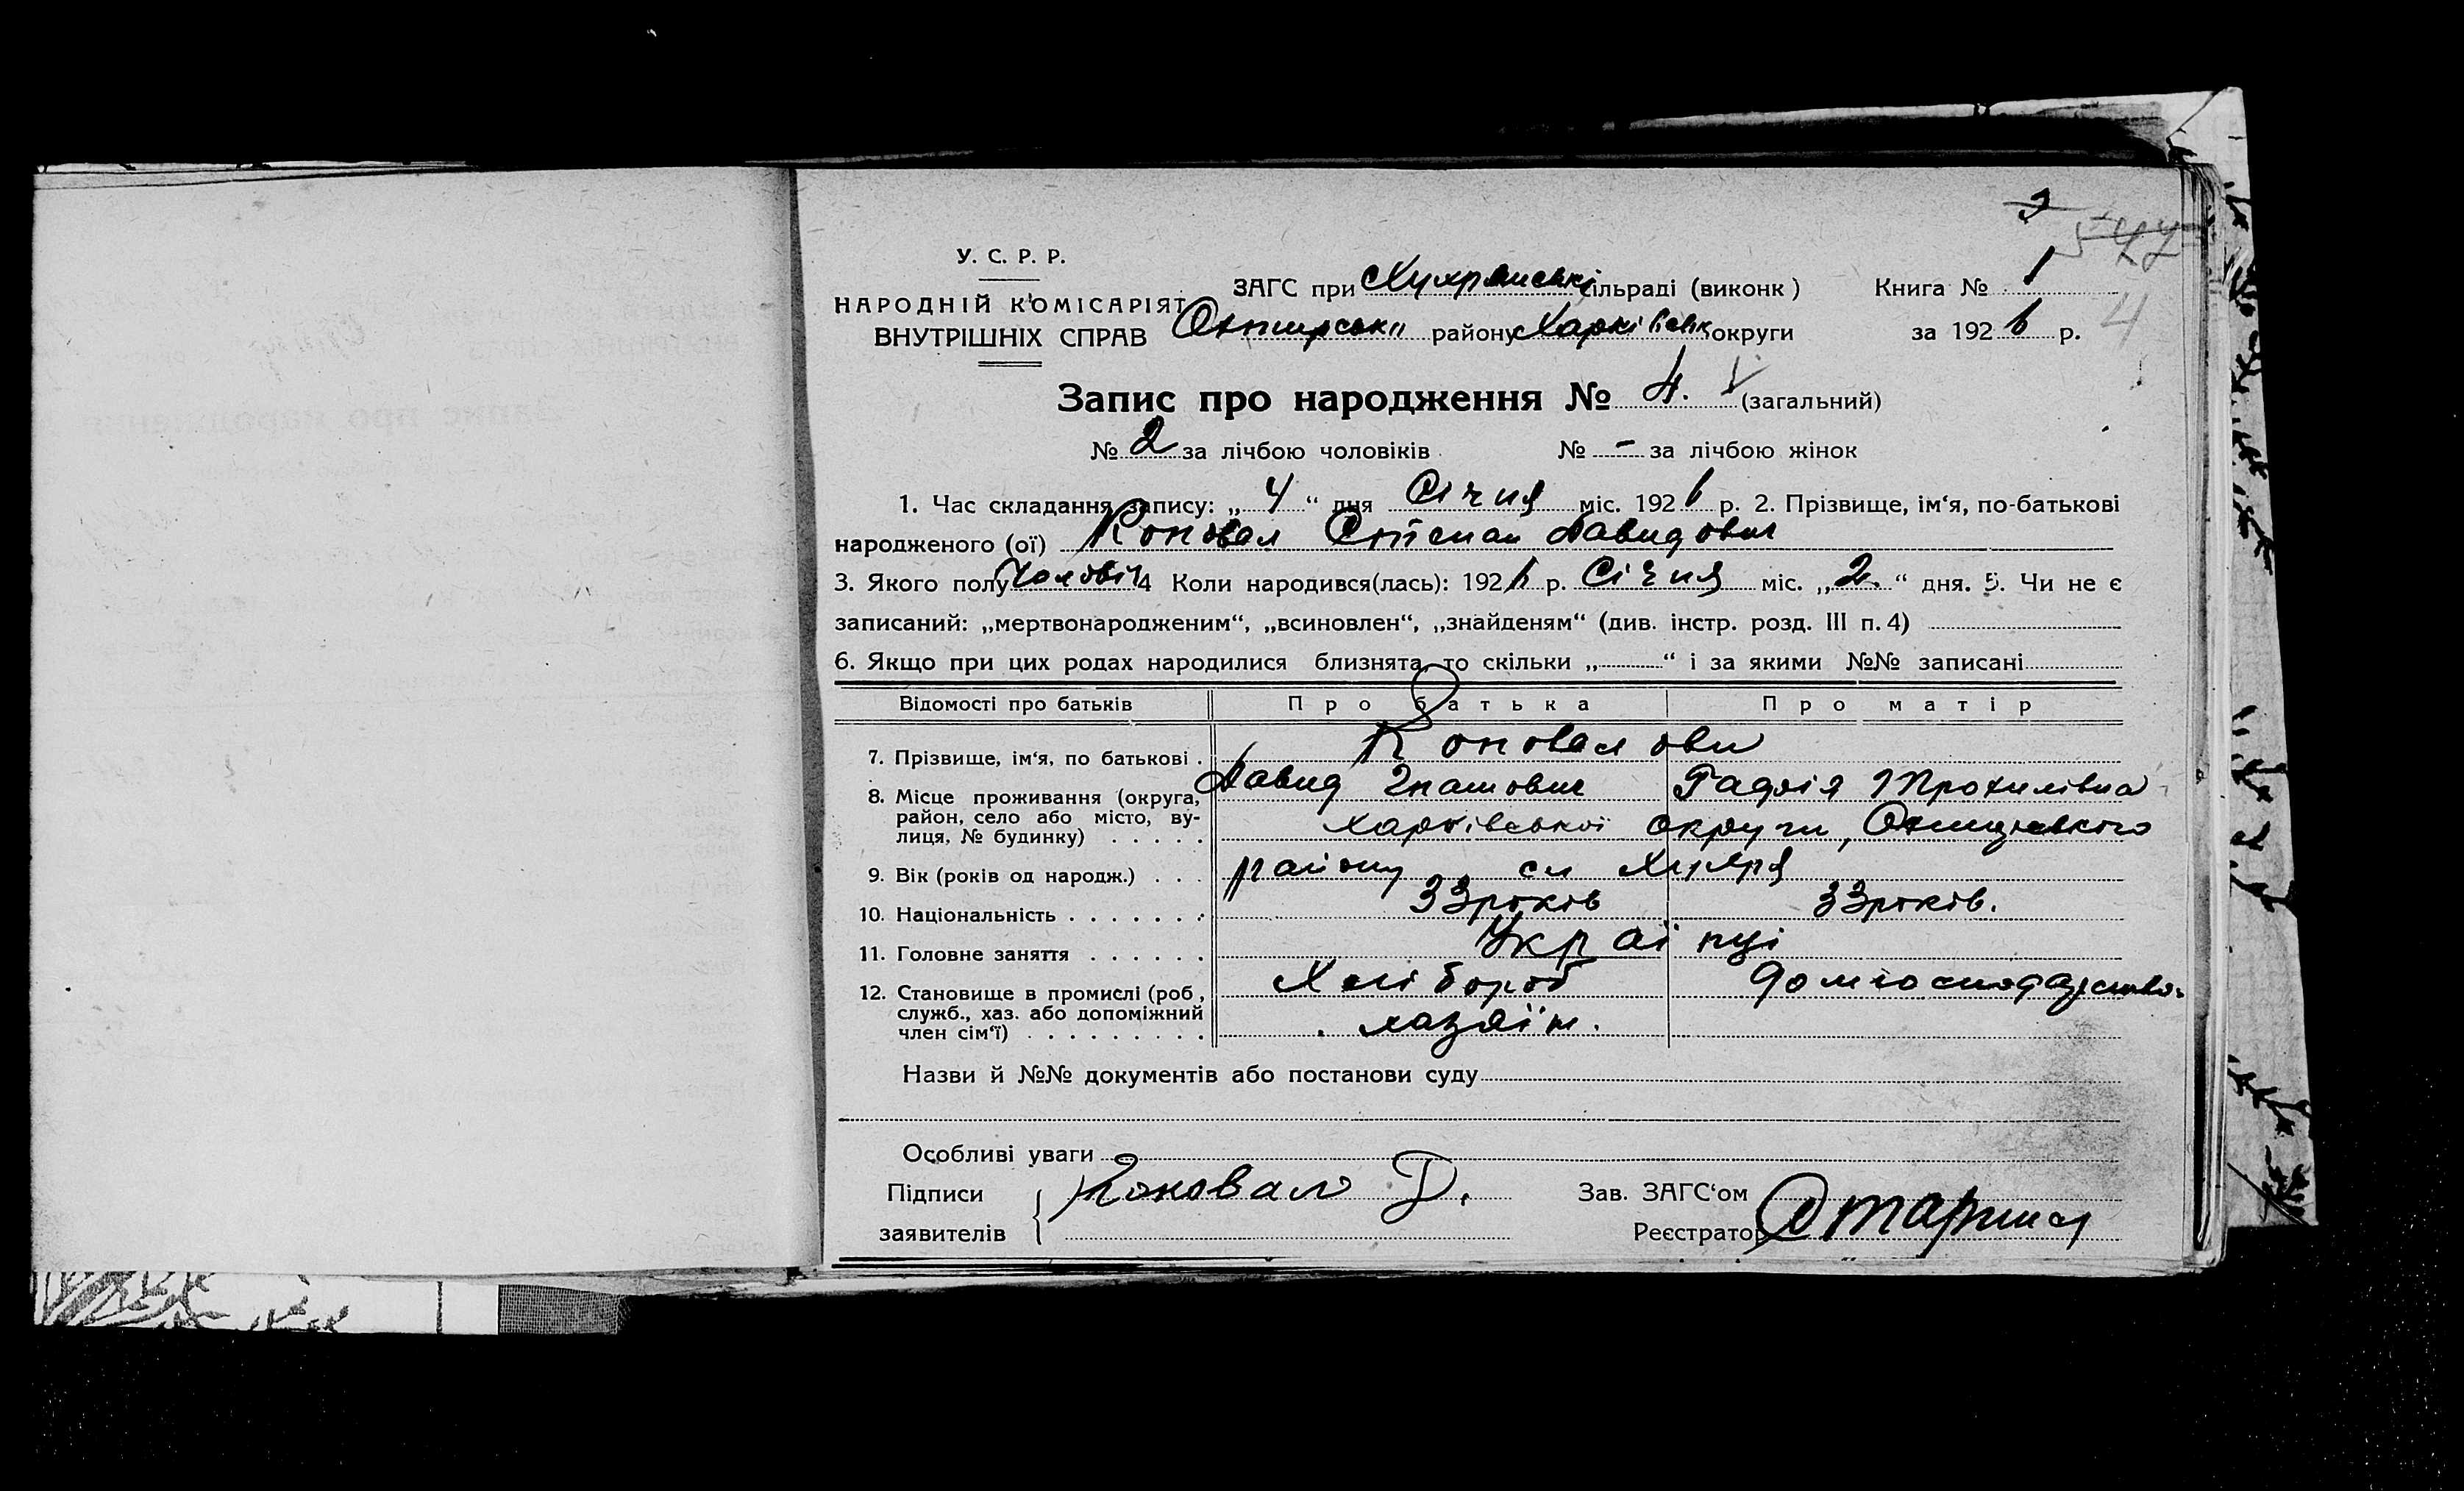 2
547
У. С. Р. Р.
НАРОДНІЙ КОМІСАРІЯТ
ВНУТРІШНІХ СПРАВ
ЗАГС при Хухрянські сільраді (виконк)
Охтирськ району Харківськ округи
Книга № 1
за 1926 р.
4
Запис про народження № 4. (загальний)
№ 2 за лічбою чоловіків № – за лічбою жінок
1. Час складання запису: „4“ дня Січня міс. 1926 р. 2. Прізвище, ім‘я, по-батькові
народженого (ої) Коновал Степан Давидович
3. Якого полу Чоловіч 4 Коли народився(лась): 1926 р. Січня міс. „2.“ дня. 5. Чи не є
записаний: „мертвонародженим“, „всиновлен“, „знайденям“ (див. інстр. розд. III п. 4)
6. Якщо при цих родах народилися близнята, то скільки „ “ і за якими №№ записані
Відомості про батьків Про батька Про матір
7. Прізвище, ім‘я, по батькові . Коновалови
Давид Гнатович Гапія Трохимівна
8. Місце проживання (округа,
район, село або місто, ву-
лиця, № будинку) . . . . .
Харківської округи, Охтирського
району см Хухря
9. Вік (років од народж.) . . .
33 років 33 років.
10. Національність . . . . . . .
Українці
11. Головне заняття . . . . . .
Хлібороб домгосподарство.
12. Становище в промислі (роб.,
служб., хаз. або допоміжний
член сім‘ї) . . . . . . . . .
хазяїн.
Назви й №№ документів або постанови суду
Особливі уваги
Підписи
заявителів
Коновал Д.
Зав. ЗАГС‘ом
Реєстратор